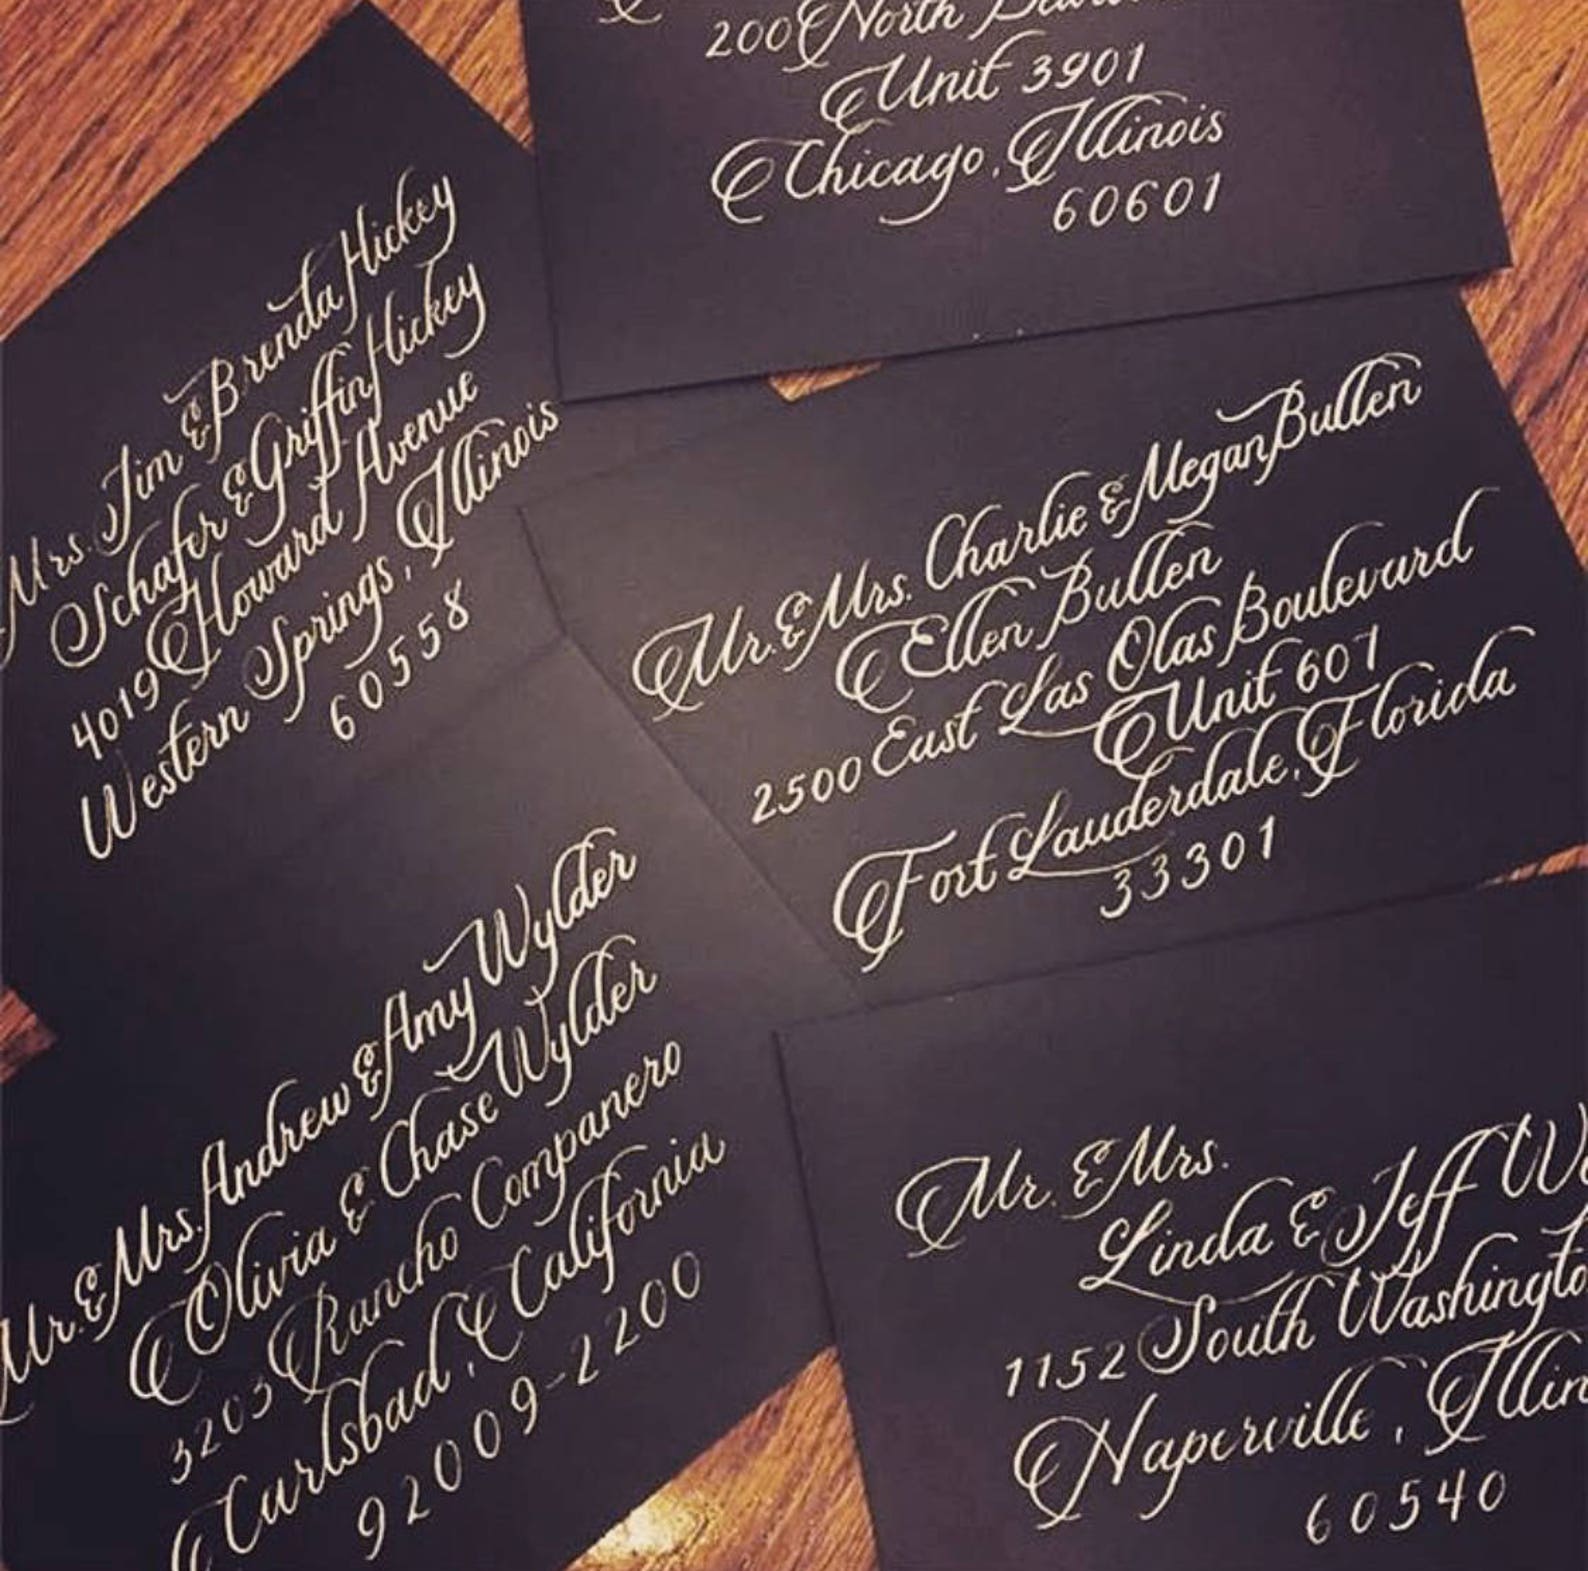 200 North
Unit 3901
Chicago, Illinois
60601
Mrs. Jim & Brenda Hickey
Schafer & Griffin Hickey
4019 Howard Avenue
Western Springs, Illinois
60558
Mr. & Mrs. Charlie & Megan Bullen
Ellen Bullen
2500 East Las Olas Boulevard
Unit 607
Fort Lauderdale, Florida
33301
Mr. & Mrs. Andrew & Amy Wylder
Olivia & Chase Wylder
3203 Rancho Companero
Carlsbad, California
92009-2200
Mr. & Mrs.
Linda & Jeff
1152 South Washingto
Naperville, Illin
60540